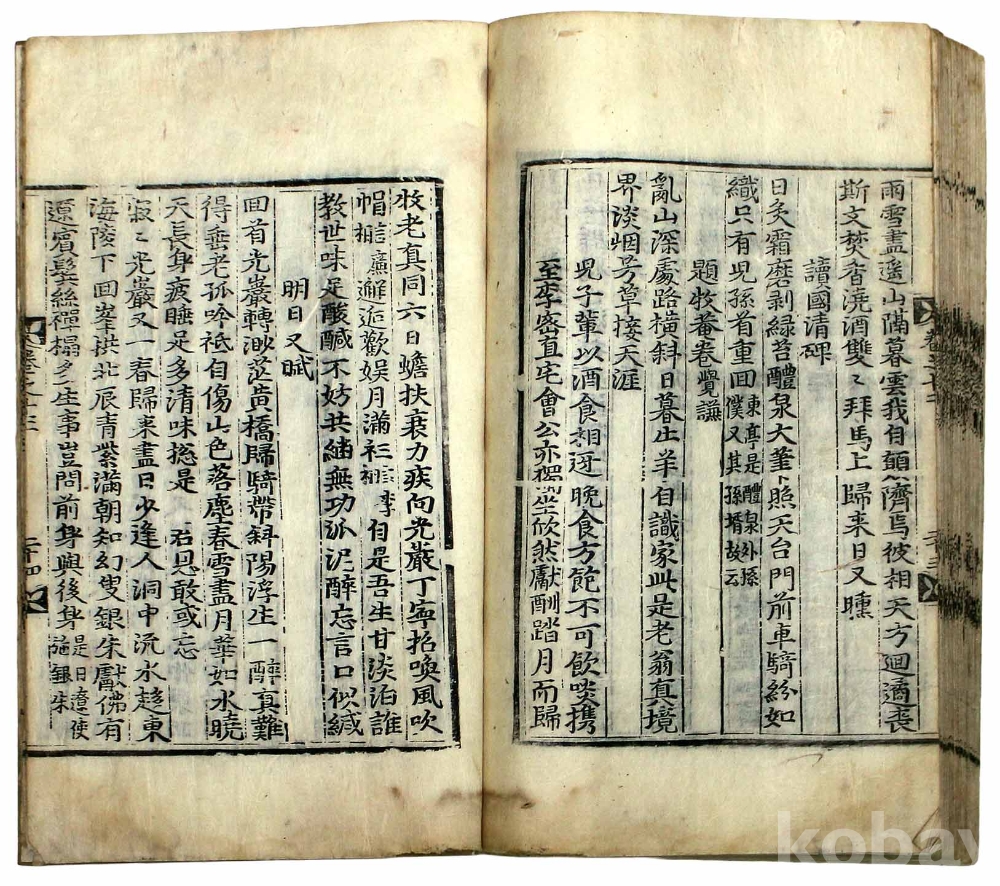 雨雪盡遙山隔暮雲我自顛隮焉彼相天方迴遹喪
斯文焚香澆酒雙〻拜馬上歸来日又曛
讀國清碑
日炙霜磨剥緑苔醴泉大筆下照天台門前車騎紛如
織只有児孫首重回東亭是醴泉外孫僕又其孫壻故云
題牧菴卷覺謙
亂山深處路横斜日暮牛羊自識家此是老翁真境
界淡烟芳草接天涯
児子輩以酒食相迓晩食方飽不可飲啖携
至李密直宅會公亦獨坐欣然獻酬踏月而歸
牧老真同六日蟾扶衰力疾向光巖丁寧招喚風吹
帽廉邂逅歡娱月滿衫李自是吾生甘淡泊誰
教世味足酸醎不妨共紬無功泒泥醉忘言口似緘
明日又賦
回首光巖轉渺茫黄橋歸騎帶斜陽浮生一醉真難
得垂老孤吟祗自傷山色落塵春雪盡月華如水曉
天長身疲睡足多清味揔是君恩敢或忘
寂〻光巖又一春歸来盡日少逢人洞中流水趍東
海陵下回峯拱北辰青紫滿朝知幻叟銀朱獻佛有
遼賓鬓絲禪榻多生事豈問前身與後身是日遼使施銀朱
二十四
kobay